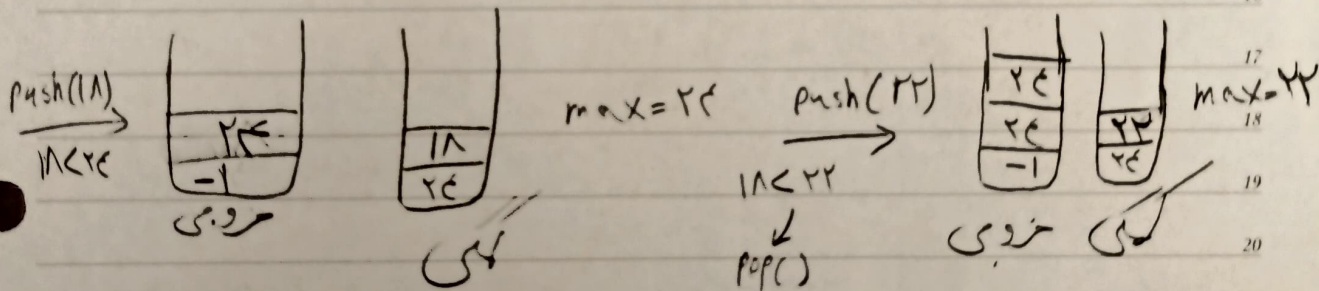 push(۱۸)
۱۸<۲۴
۲۴
-۱
خروجی
۱۸
۲۴
کمکی
max=۲۴
push(۲۲)
۱۸<۲۲
pop()
۲۴
۲۴
-۱
خروجی
۲۲
۲۴
کمکی
max=۲۲
17
18
19
20